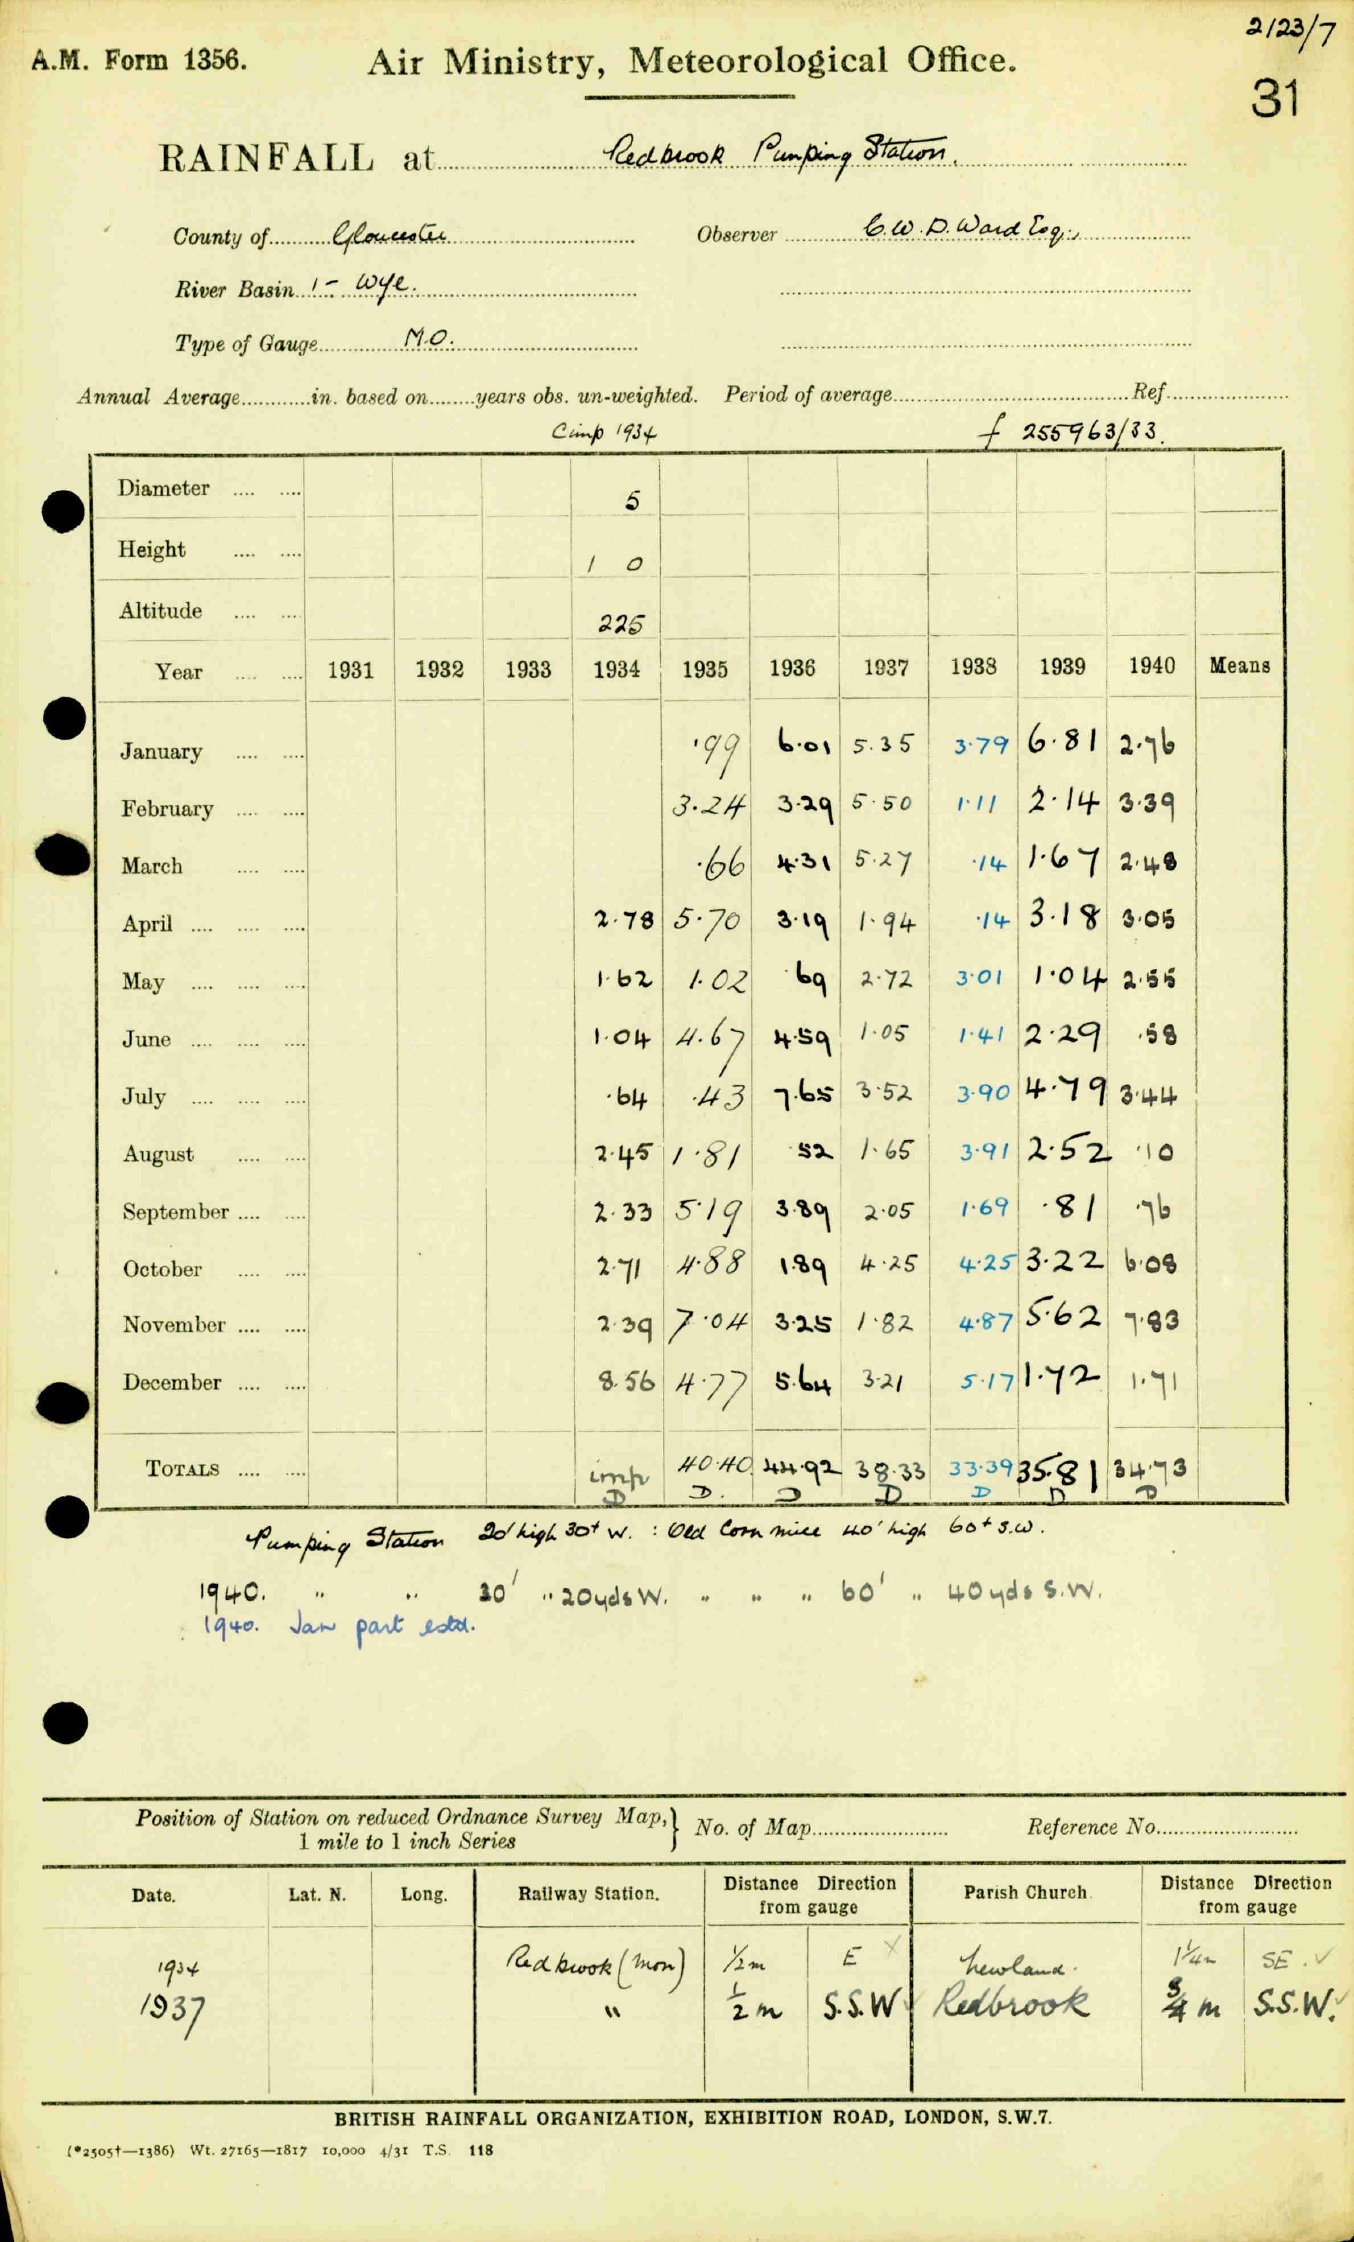 2123/7
A.M. Form 1356. Air Ministry, Meteorological Office.
31
RAINFALL at Redbrook Pumping Station.
County of Gloucester Observer C.W.D. Ward Esq.,
River Basin 1- Wye.
Type of Gauge M.O.
Annual Average in. based on years obs. un-weighted. Period of average Ref.
Cimp 1934 f 255963/33.
Diameter 5
Height 1 0
Altitude 225
Year 1931 1932 1933 1934 1935 1936 1937 1938 1939 1940 Means
January .99 6.01 5.35 3.79 6.81 2.76
February 3.24 3.29 5.50 1.11 2.14 3.39
March .66 4.31 5.27 .14 1.67 2.48
April 2.78 5.70 3.19 1.94 .14 3.18 3.05
May 1.62 1.02 .69 2.72 3.01 1.04 2.55
June 1.04 4.67 4.59 1.05 1.41 2.29 .58
July .64 .43 7.65 3.52 3.90 4.79 3.44
August 2.45 1.81 .52 1.65 3.91 2.52 .10
September 2.33 5.19 3.89 2.05 1.69 .81 .76
October 2.71 4.88 1.89 4.25 4.25 3.22 6.08
November 2.39 7.04 3.25 1.82 4.87 5.62 7.83
December 8.56 4.77 5.64 3.21 5.17 1.72 1.71
TOTALS imp 40.40 44.92 38.33 33.39 35.81 34.73
D D. D D D D D
Pumping Station 20' high 30+ W. : Old Corn mill 40' high 60+ S.W.
1940. " " 30' " 20yds W. " " " 60' " 40yds S.W.
1940. Jan part estd.
Position of Station on reduced Ordnance Survey Map, 1 mile to 1 inch Series } No. of Map Reference No.
Date. Lat. N. Long. Railway Station. Distance Direction from gauge Parish Church. Distance Direction from gauge
1934 Redbrook (Mon) ½m E Newland. 1¼m SE.
1937 " ½ m S.S.W Redbrook ¾ m S.S.W.
BRITISH RAINFALL ORGANIZATION, EXHIBITION ROAD, LONDON, S.W.7.
(*2505†—1386) Wt. 27165—1817 10,000 4/31 T.S. 118